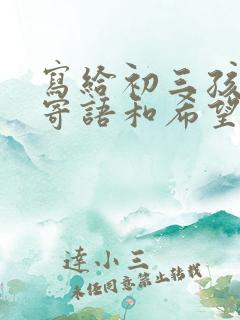 寫給初三孩
寄語和希望
達小三
未經同意禁止轉載